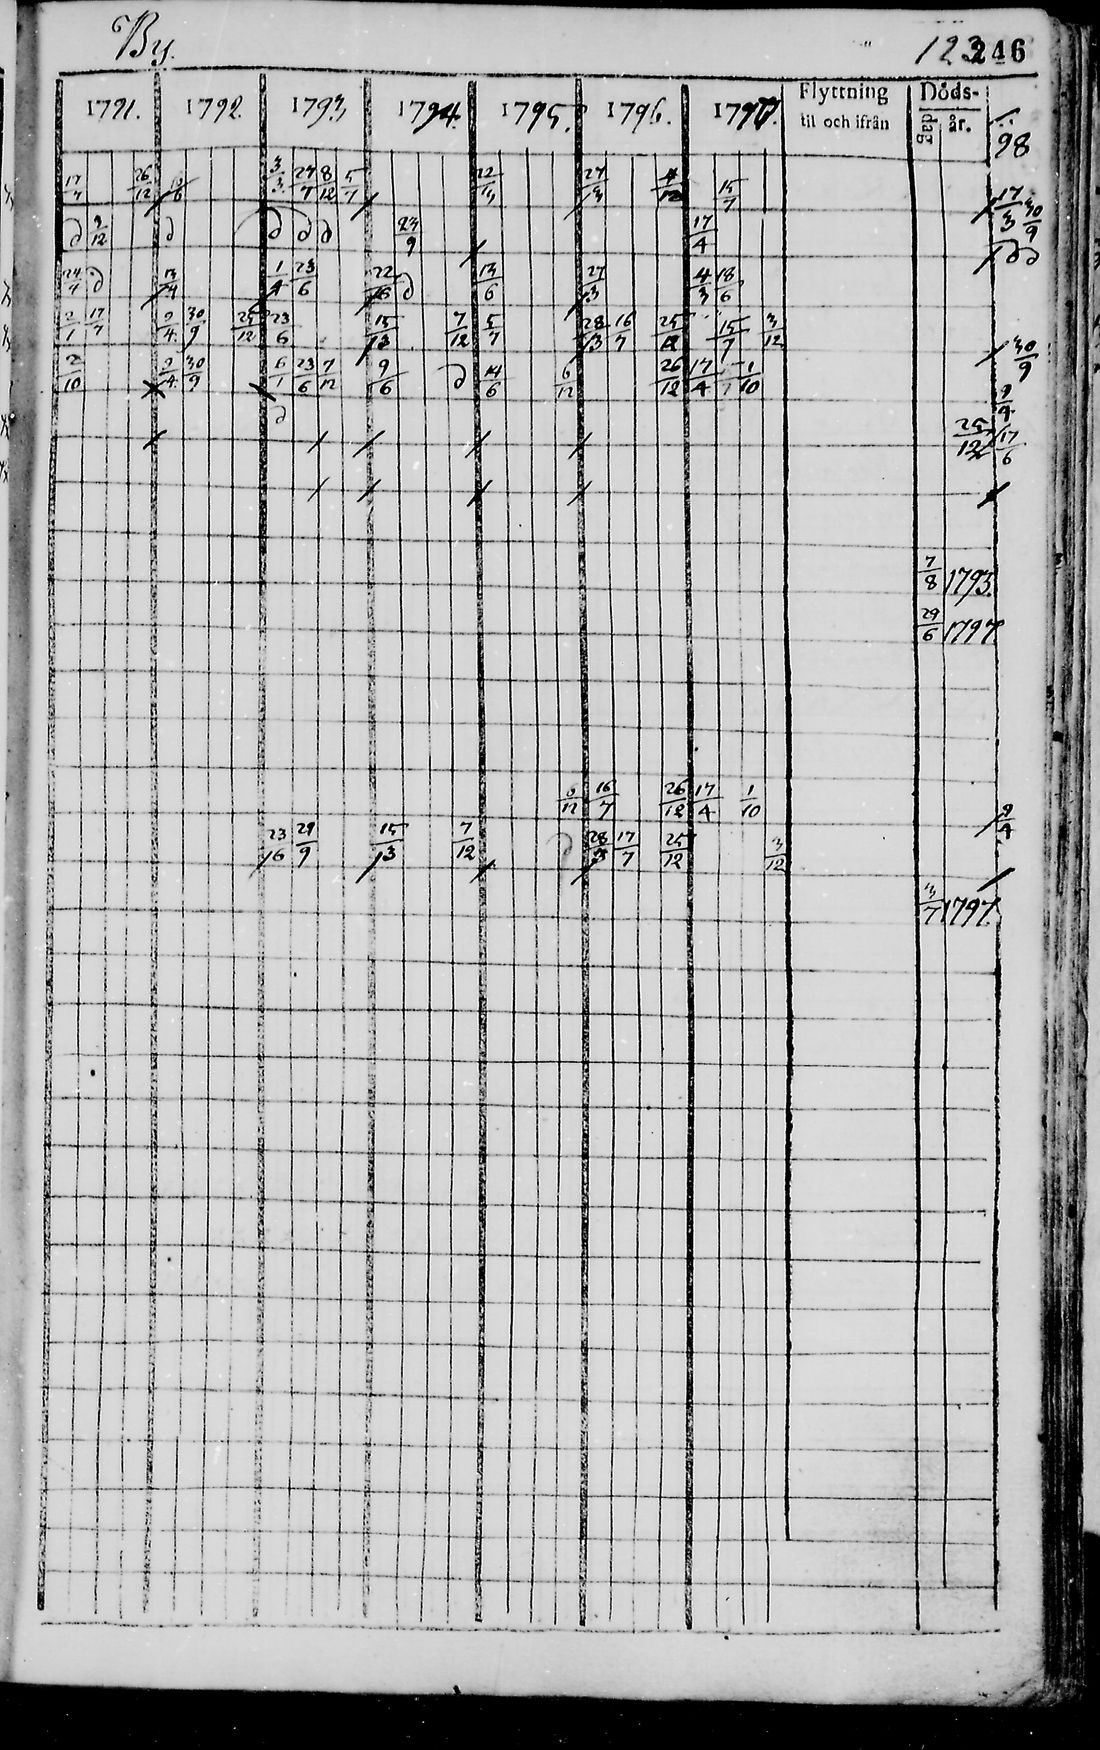 By. 123 246
1791. 1792. 1793, 1794. 1795. 1796. 1797. Flyttning til och ifrån Döds- dag år. 98
17/7 26/12 3/3 27/7 8/12 5/7 22/3 27/3 4/12 15/7 17/3 30/9
∂ 2/12 ∂ ∂ ∂ ∂ 23/9 17/4 ∂ ∂
24/4 ∂ 13/4 1/4 23/6 22/6 ∂ 13/6 27/3 4/3 18/6
2/1 17/7 2/4 30/9 25/12 23/6 15/3 7/12 5/7 28/3 16/7 25/12 15/7 3/12 30/9
2/10 2/4 30/9 6/1 23/6 7/12 9/6 ∂ 14/6 6/12 26/12 17/4 1/10 2/4
∂ 25/12 17/6
7/8 1793.
29/6 1797
6/12 16/7 26/12 17/4 1/10 2/4
23/6 29/9 15/3 7/12 ∂ 28/3 17/7 25/12 3/12
3/7 1797.